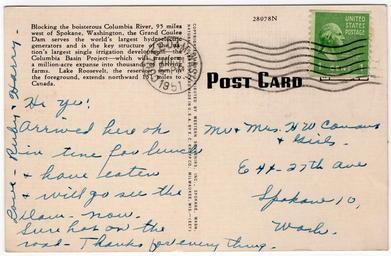 Blocking the boisterous Columbia River, 95 miles
west of Spokane, Washington, the Grand Coulee
Dam serves the world's largest hydroelectric
generators and is the key structure of the
nation's largest single irrigation development, the
Columbia Basin Project—which will
a million-acre expanse into thousands of
farms. Lake Roosevelt, the reservoir in
the foreground, extends northward 151 miles to
Canada.
28078N
UNITED
STATES
POSTAGE
1951
POST CARD
Hi Yes!
Arrived here ok
in time for lunch
& have eaten
& will go see the
dam now.
Sure hot on the
road - Thanks for every thing.
Love - Ruby & Harry -
Mr & Mrs. H W
& Girls.
E 44 - 27th Ave
Spokane 10
Wash.